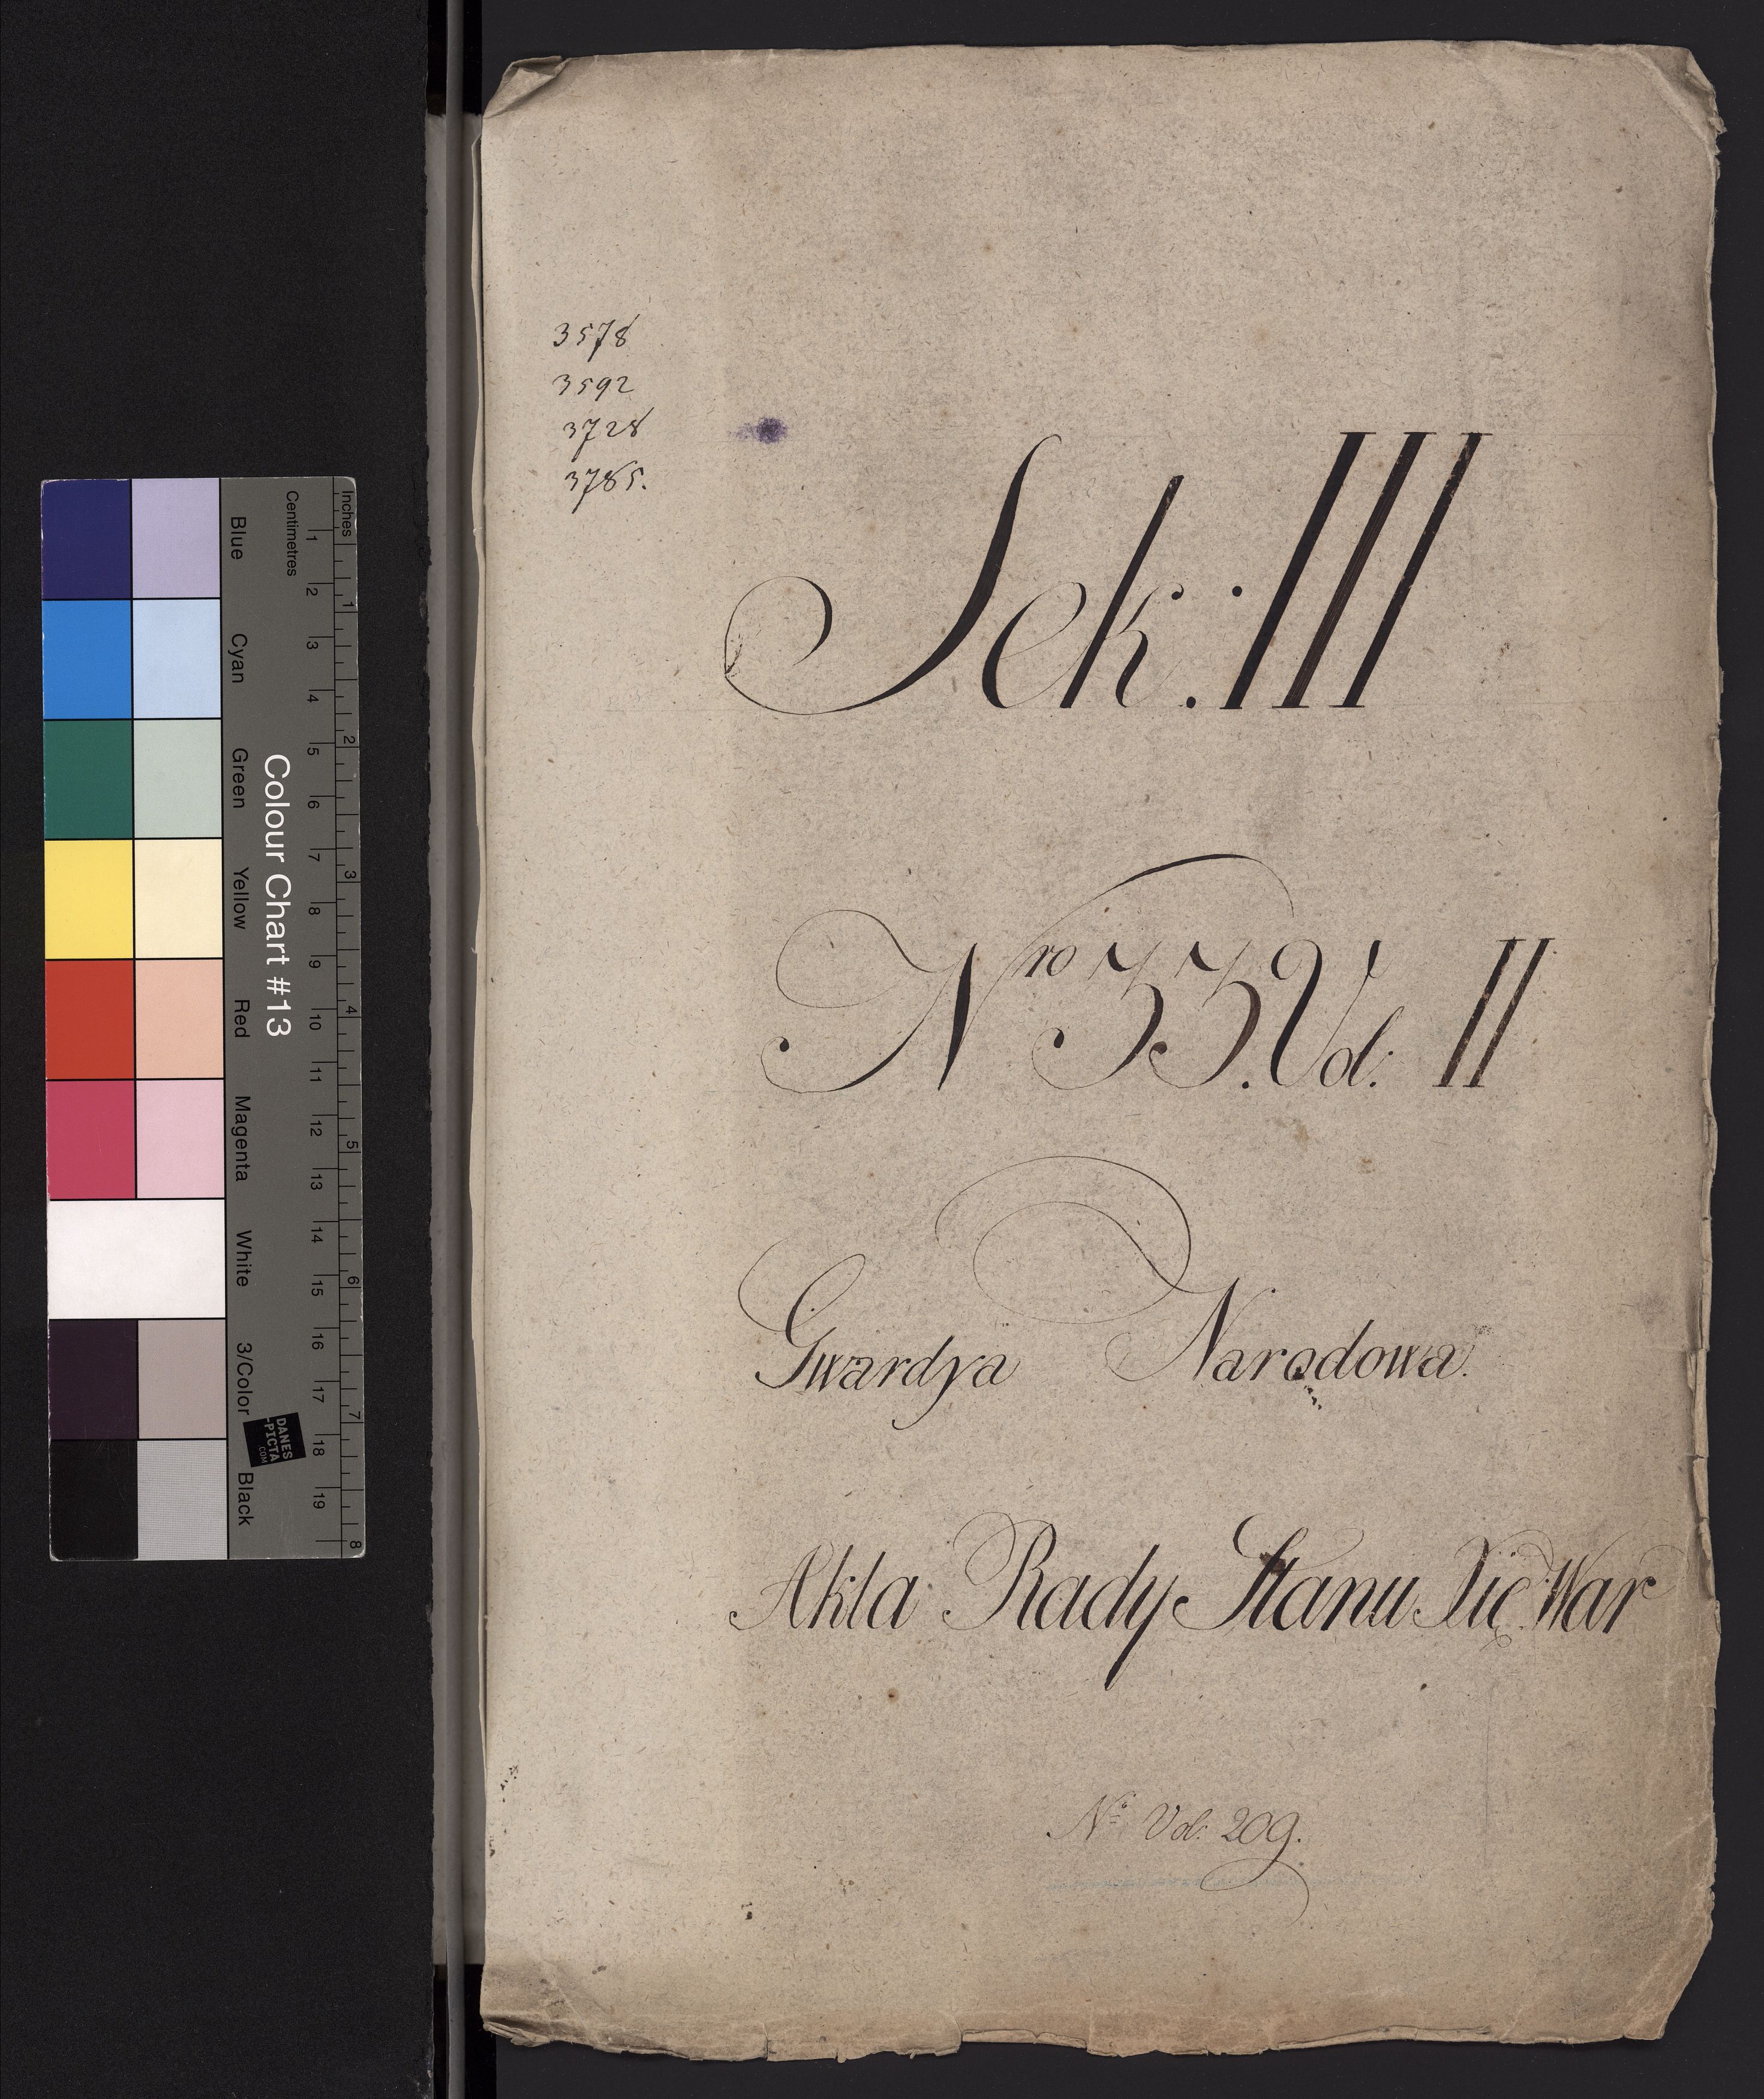 3578
3592
3728
3785.
Sek: III
Nro 33. Vol: II
Gwardya Narodowa.
Akta Rady Stanu Xię War
No Vol: 209.
Colour Chart #13
Inches
Centimetres
1 2 3 4 5 6 7 8 9 10 11 12 13 14 15 16 17 18 19
1 2 3 4 5 6 7 8
Blue Cyan Green Yellow Red Magenta White 3/Color Black
DANES
-PICTA
.COM